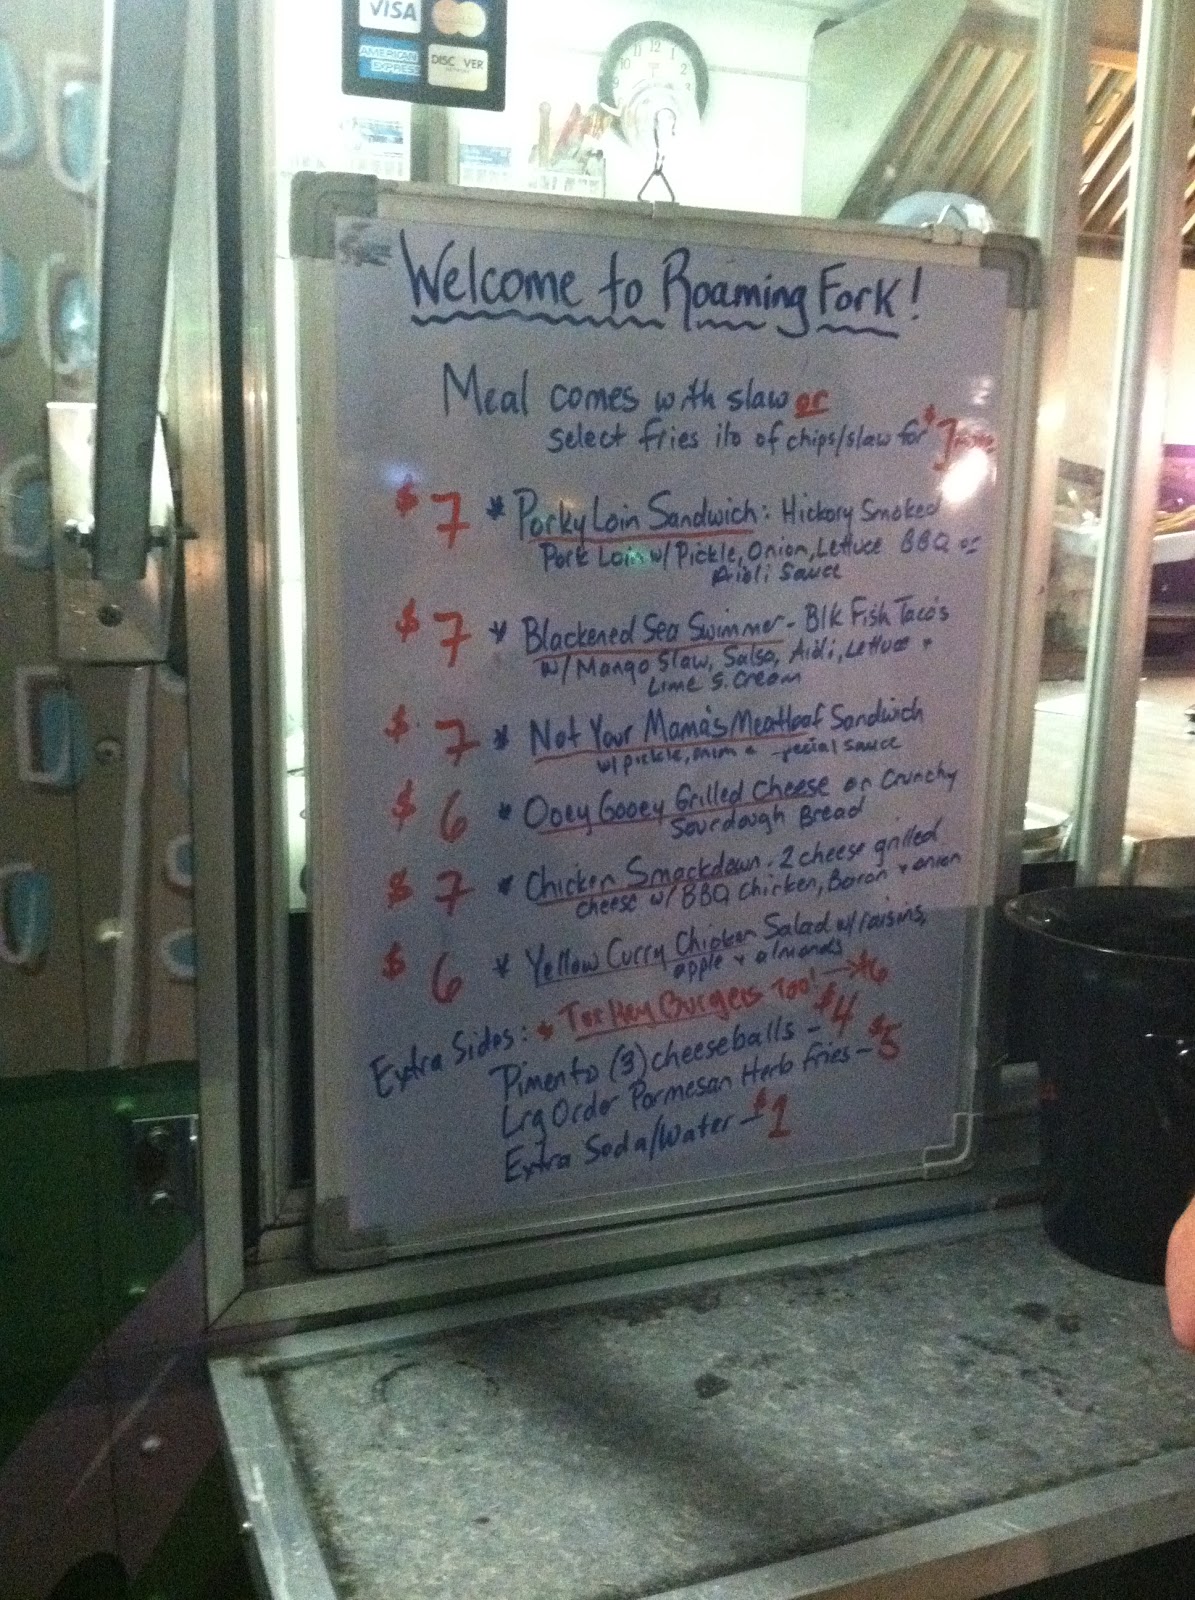 VISA
AMERICAN EXPRESS
DISC VER
Welcome to Roaming Fork!
Meal comes with slaw or
select fries ilo of chips/slaw for $1
$7 * Porky Loin Sandwich: Hickory Smoked
Pork Loin w/ Pickle, Onion, Lettuce BBQ or
Aioli Sauce
$7 * Blackened Sea Swimmer - Blk Fish Taco's
w/ Mango Slaw, Salsa, Aioli, Lettuce +
Lime S. Cream
$7 * Not Your Mama's Meatloaf Sandwich
w/ pickle, sauce
$6 * Ooey Gooey Grilled Cheese on Crunchy
Sourdough Bread
$7 * Chicken Smackdown. 2 cheese grilled
cheese w/ BBQ Chicken, Bacon + onion
$6 * Yellow Curry Chicken Salad w/ raisins,
apple + almonds
* Turkey Burgers Too! → $6
Extra Sides:
Pimento (3) cheeseballs - $4
Lrg Order Parmesan Herb Fries - $5
Extra Soda/Water - $1